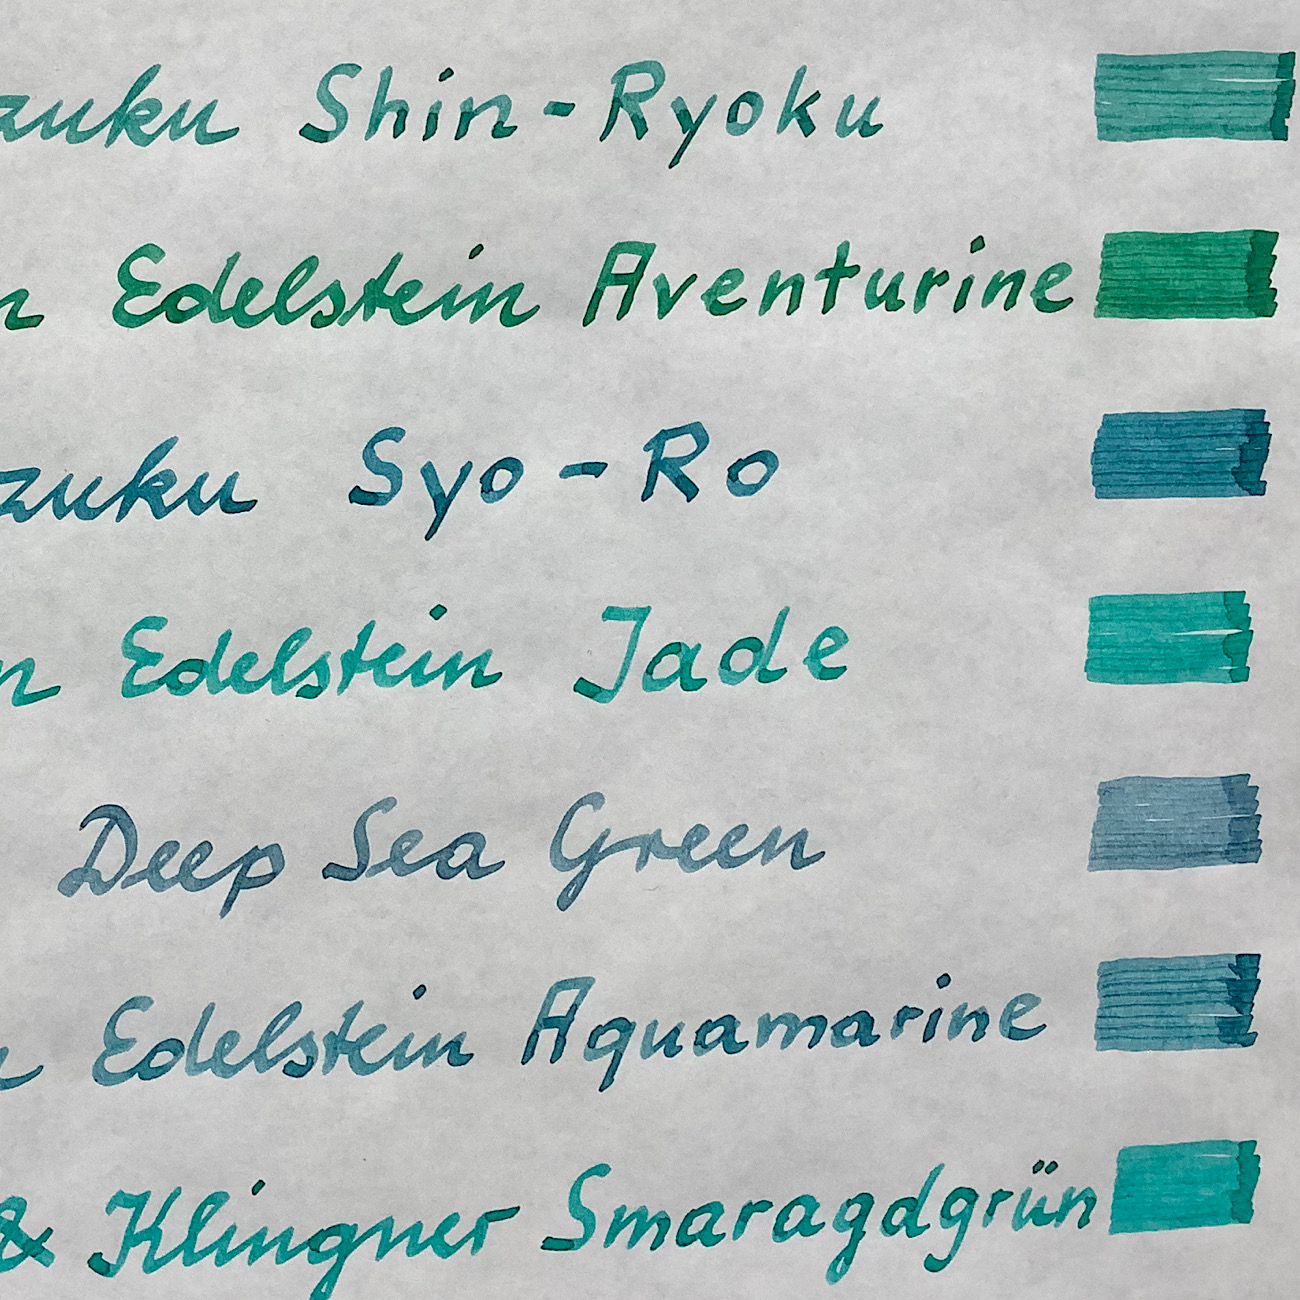 zuku Shin-Ryoku
n Edelstein Aventurine
zuku Syo-Ro
n Edelstein Jade
Deep Sea Green
n Edelstein Aquamarine
& Klingner Smaragdgrün